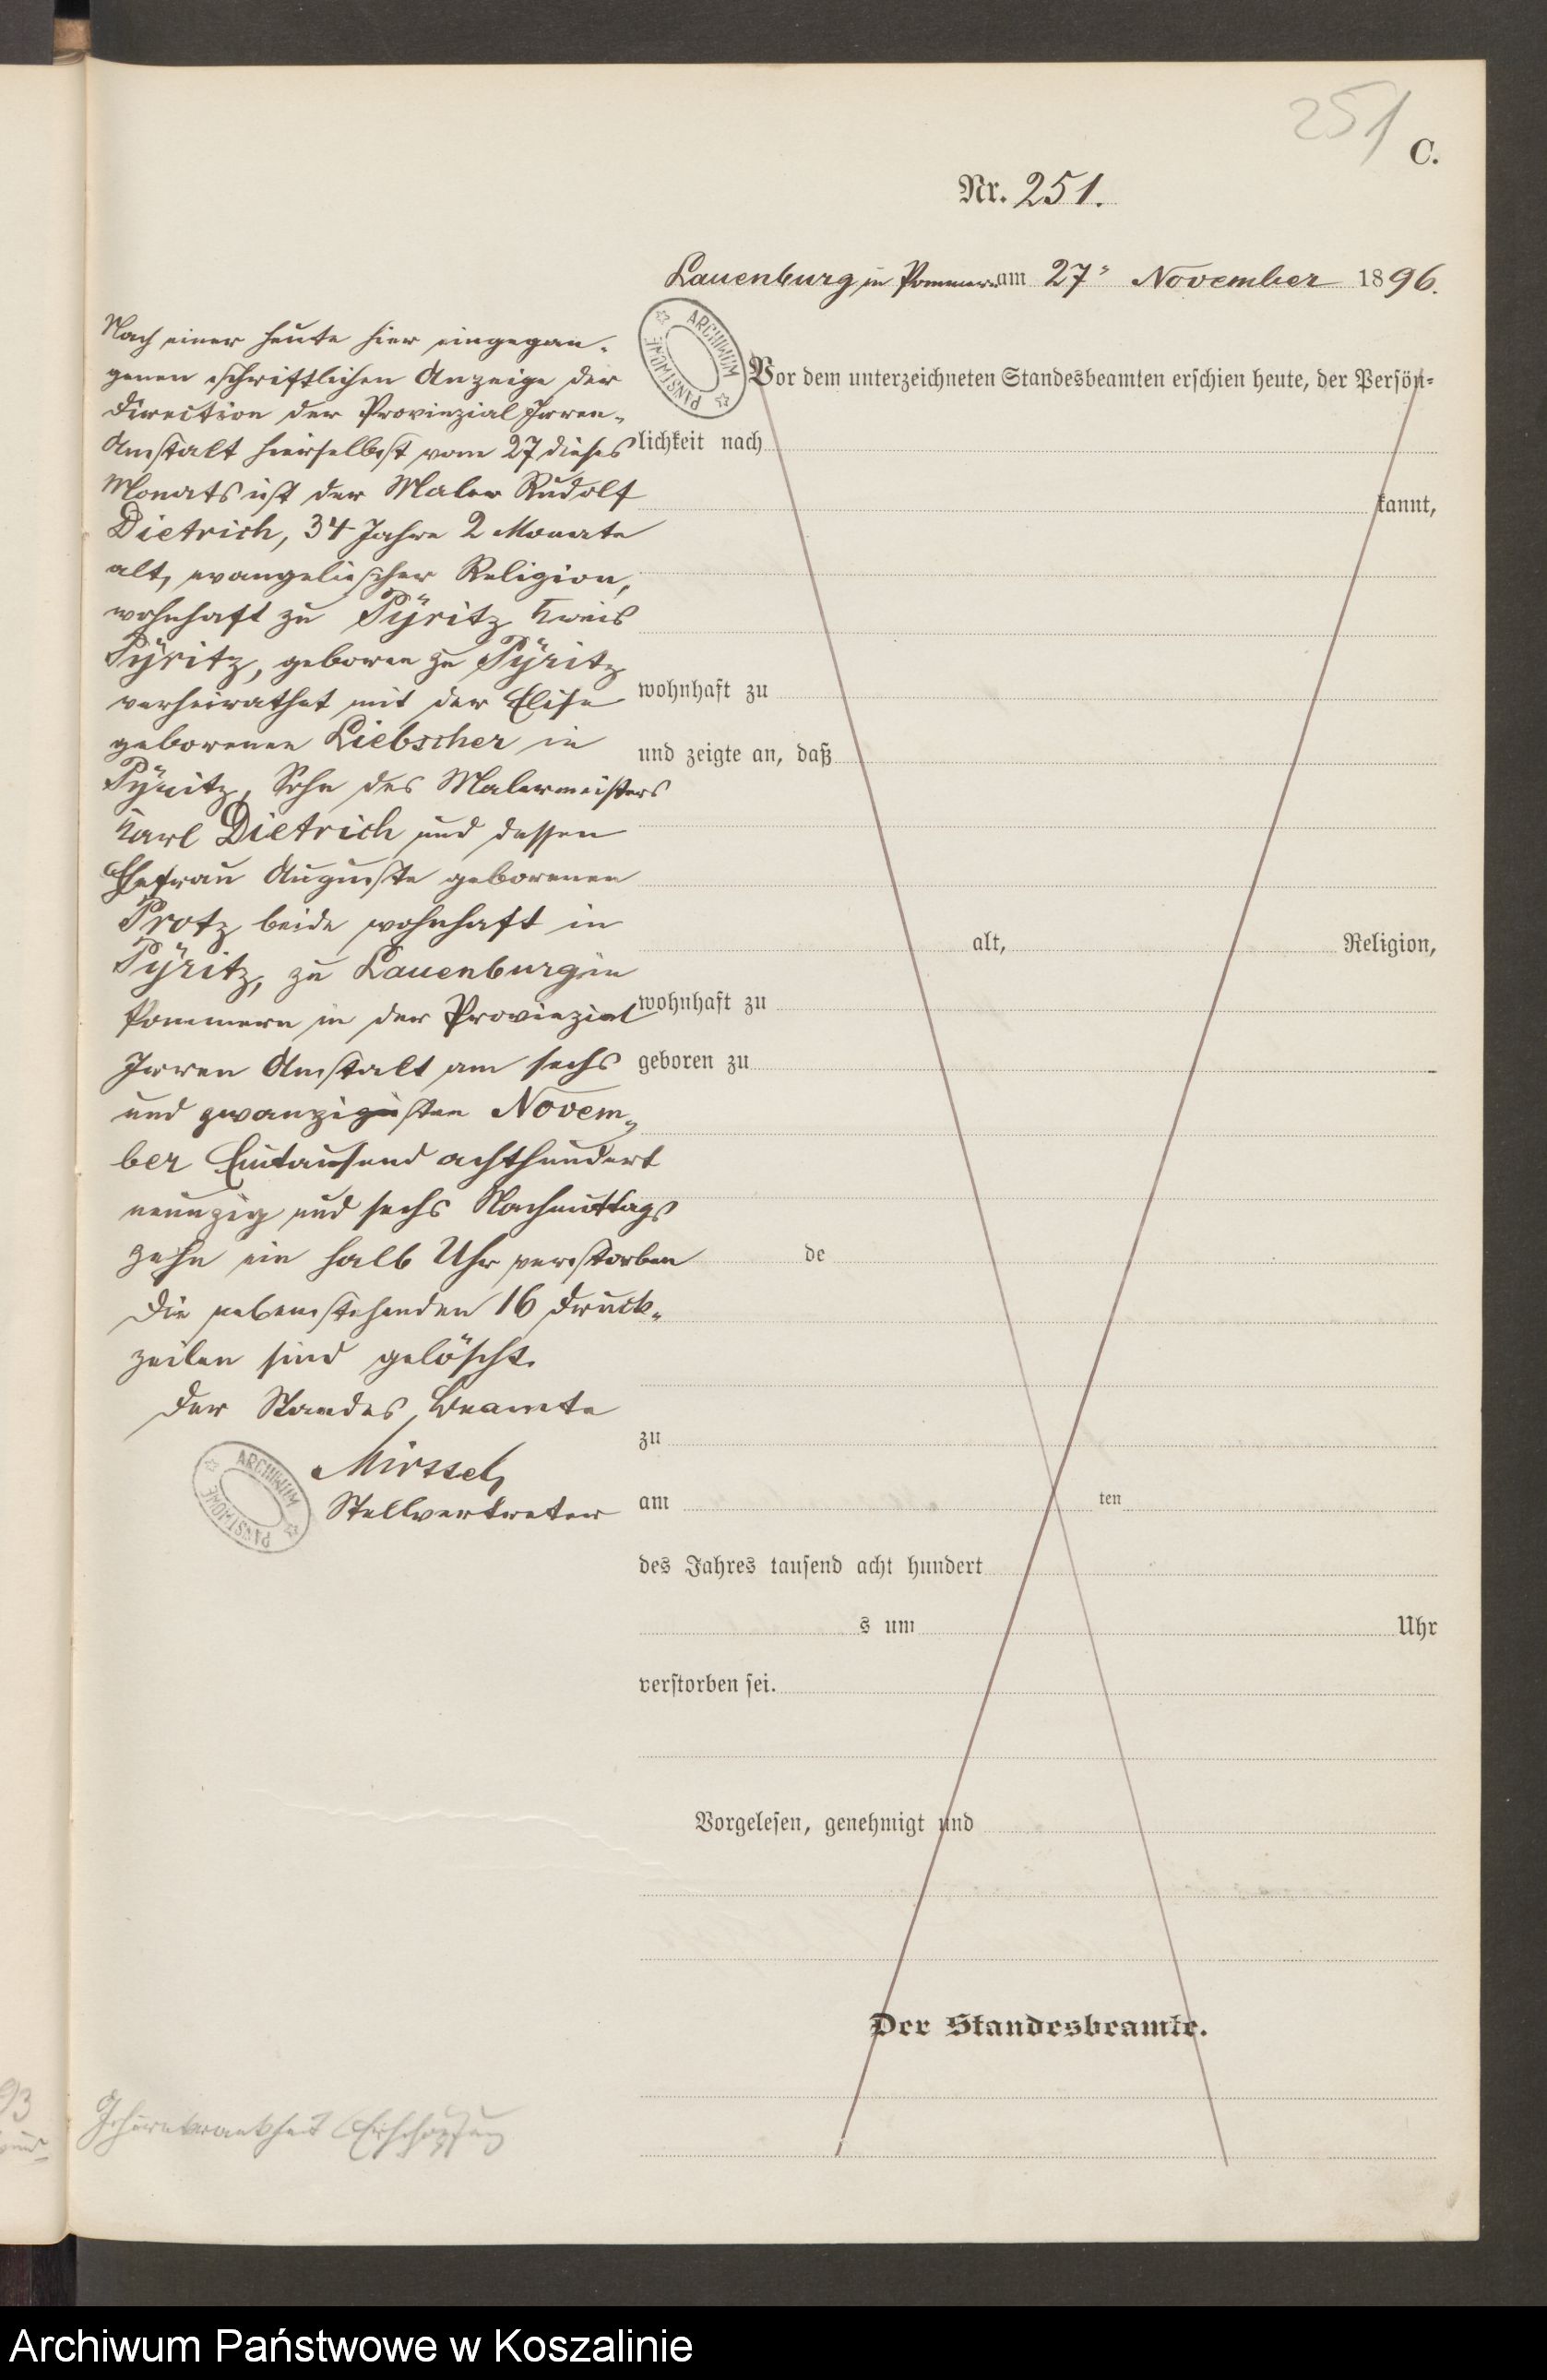 251
C.
Nr. 251.
Lauenburg in Pommern am 27ᵗ November 1896.
Nach einer heute hier eingegan-
genen schriftlichen Anzeige der
Direction der Provinzial Irren-
Anstalt hierselbst vom 27 dieses
Monats ist der Maler Rudolf
Dietrich, 34 Jahre 2 Monate
alt, evangelischer Religion,
wohnhaft zu Pÿritz Kreis
Pÿritz, geboren zu Pÿritz
verheirathet mit der Elise
geborenen Liebscher in
Pÿritz, Sohn des Malermeisters
Karl Dietrich und dessen
Ehefrau Auguste geborenen
Protz beide wohnhaft in
Pÿritz, zu Lauenburg in
Pommern in der Provinzial
Irren Anstalt am sechs
und zwanzigsten Novem-
ber Eintausend achthundert
neunzig und sechs Nachmittags
zehn ein halb Uhr verstorben
Die nebenstehenden 16 Druck-
zeilen sind gelöscht.
Der Standes Beamte
Stellvertreter
ARCHIWUM PAŃSTWOWE
Vor dem unterzeichneten Standesbeamten erschien heute, der Persön-
lichkeit nach
kannt,
wohnhaft zu
und zeigte an, daß
alt, Religion,
wohnhaft zu
geboren zu
de
zu
am ten
des Jahres tausend acht hundert
s um Uhr
verstorben sei.
Vorgelesen, genehmigt und
Der Standesbeamte.
ARCHIWUM PAŃSTWOWE
Gehirnkrankheit Erschöpfung
93
Archiwum Państwowe w Koszalinie